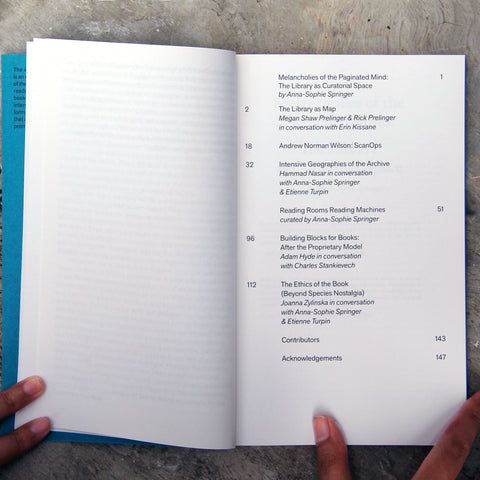 Melancholies of the Paginated Mind: 1
The Library as Curatorial Space
by Anna-Sophie Springer
2 The Library as Map
Megan Shaw Prelinger & Rick Prelinger
in conversation with Erin Kissane
18 Andrew Norman Wilson: ScanOps
32 Intensive Geographies of the Archive
Hammad Nasar in conversation
with Anna-Sophie Springer
& Etienne Turpin
Reading Rooms Reading Machines 51
curated by Anna-Sophie Springer
96 Building Blocks for Books:
After the Proprietary Model
Adam Hyde in conversation
with Charles Stankievech
112 The Ethics of the Book
(Beyond Species Nostalgia)
Joanna Zylinska in conversation
with Anna-Sophie Springer
& Etienne Turpin
Contributors 143
Acknowledgements 147